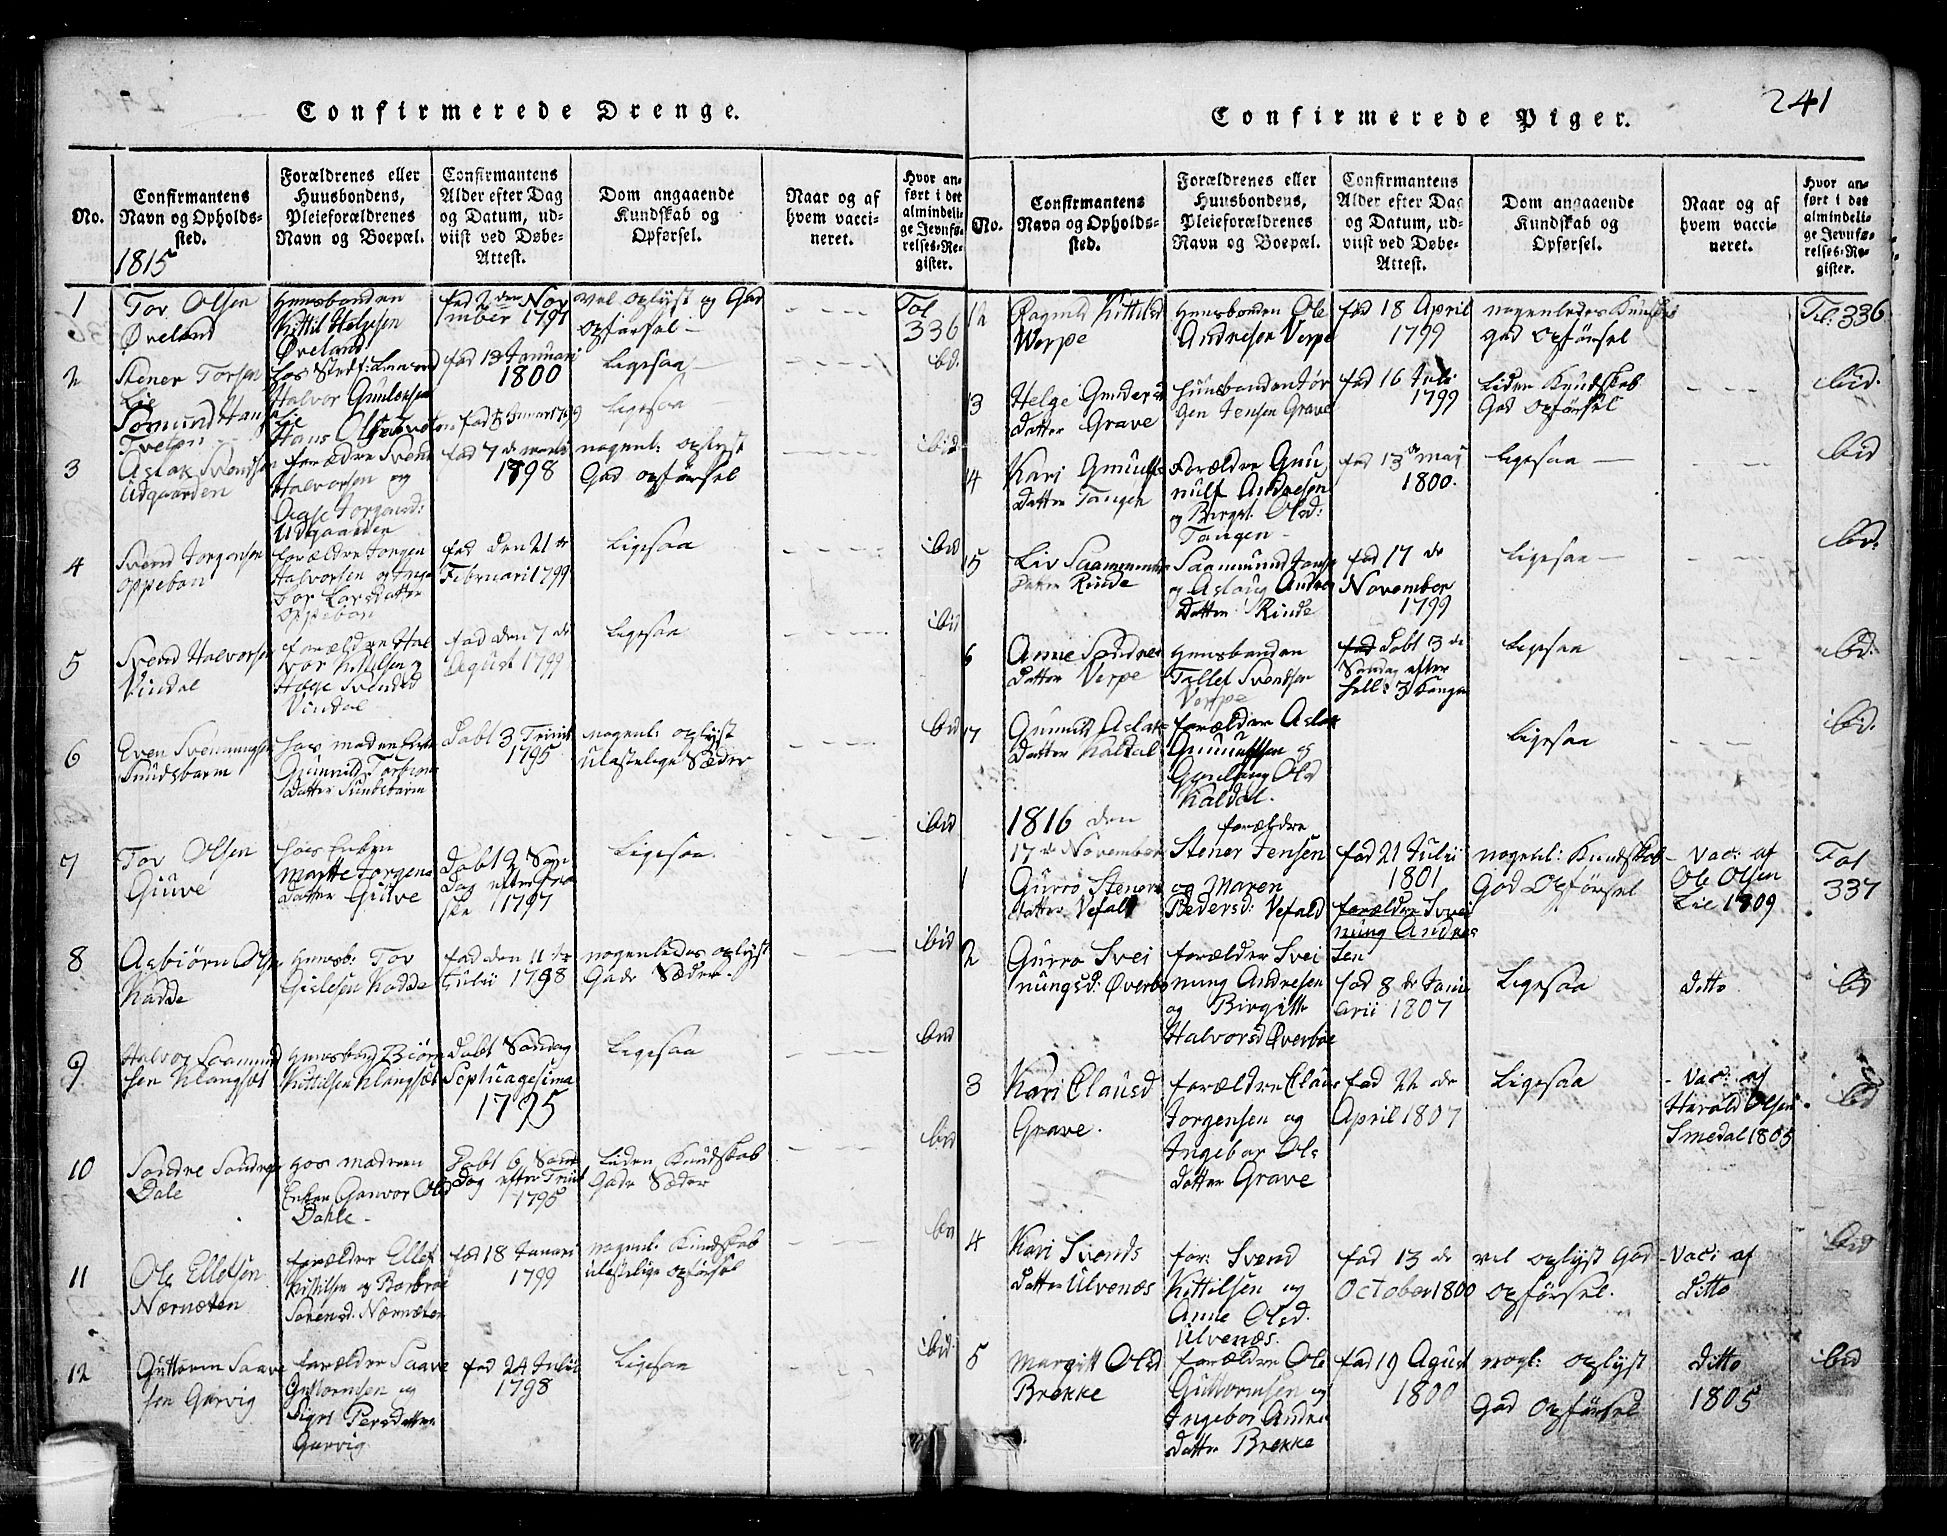 Confirmerede Drenge.
No.
Confirmantens
Navn og Opholds-
sted.
1815
Forældrenes eller
Huusbondens,
Pleieforældrenes
Navn og Boepæl.
Confirmantens
Alder efter Dag
og Datum, ud-
viist ved Døbe-
Attest.
Dom angaaende
Kundskab og
Opførsel.
Naar og af
hvem vacci-
neret.
Hvor an-
ført i det
almindeli-
ge Jevnfø-
relses-Re-
gister.
1
Tov Olsen
Øveland
Huusbonden
Kittil Helgesen
Øveland
fød 2 den Nov
ember 1797
vel oplyst og God
opførsel
Fol
336
2
Stener Torsen
Lie
Halvor Gunlecsen
Lie
fød 13 Januari
1800
Ligesaa
ibd.
Tveten
Ligesaa
3
Aslak Svendsen
Udgaarden
forældre Svend
Halvorsen og
Aase Jorgensd:
Udgaarden
fød 7 de
1798
nogenl: oplyst
God opførsel
ibid
4
Svend Jorgensen
Oppebøn
forældre Jorgen
Halvorsen og Inge
bor Larsdatter
Oppebøn
fød den 21 de
Februari 1799
Ligesaa
ibid
5
Svend Halvorsen
Vindal
forældre Hal
vor Kittilsen og
Hæge Svendsd
Vindal
fød den 7 de
August 1799
Ligesaa
ibid
6
Even Svenningsen
Sundsbarm
hos moderen
Gunnild
datter Sundsbarm
Døbt 3 Trinit
1795
nogenl: oplyst
ulastelige Sæder
ibid
7
Tov Olsen
Giuve
hos Enken
Marte Jorgens
datter Giuve
Døbt 2 Søn
dag efter Paa
ske 1797
Ligesaa.
ibid
8
Asbiørn Olsen
Kadde
Huusb: Tov
Gislesen Kadde
fød den 11 te
Julii 1798
nogenledes oplyst
Gode Sæder.
ibid
9
Halvor Saamund
sen Klangsæt
Huusbond Biørn
Kittilsen Klangsæt
Døbt Søndag
Septuagesima
1795
Ligesaa
ibid
10
Sondre Sondresen
Dale
hos moderen
Enken Gunvor Olsd
Dahle
Døbt 6 Søn
Dag efter Trinit
1795
Liden Kundskab
Gode Sæder
ibid
11
Ole Ellefsen
Nærneten
forældre Ellef
Kittilsen og Barbroe
Sørensd. Nærneten
fød 18 Januari
1799
nogenl: Kundskab
ulastelige opførsel
ibd
12
Guttorm Saave
sen Garvig
forældre Saave
Guttormsen og
Sigri Persdatter
Garvig
fød 24 Julii
1798
Ligesaa
ibid.
241
Confirmerede Piger.
No.
Confirmantens
Navn og Opholds-
sted.
Forældrenes eller
Huusbondens,
Pleieforældrenes
Navn og Boepæl.
Confirmantens
Alder efter Dag
og Datum, ud-
viist ved Døbe-
Attest.
Dom angaaende
Kundskab og
Opførsel.
Naar og af
hvem vacci-
neret.
Hvor an-
ført i det
almindeli-
ge Jevnfø-
relses-Re-
gister.
12
Ragnild Kittilsd
Verpe
Huusbonden Ole
Andresen Verpe
fød 18 April
1799
nogenledes Kundsk
god Opførsel
Fol: 336
13
Helge Gunders
datter Grave
Huusbonden Jør
gen Jensen Grave
fød 16 Juli
1799
Liden Kundskab
God Opførsel
ibid.
14
Kari Gunulfs
datter Tangen
Forældre Gun
nulf Andresen
og Birgit Olsd:
Tangen
fød 13 de maj
1800.
Ligesaa
ibid
15
Liv Saamunds
datter Rinde
Saamund Jonsen
og Aslaug Andres
datter Rinde
fød 17 de
November
1799
Ligesaa
ibd.
6
Anne Sondres
datter Verpe
Huusbonden
Tellef Svendsen
Verpe
fød Døbt 3 de
Søndag efter
hell: 3 Konger
Ligesaa
ibd.
17
Gunnild Aslaks
datter Kaldal
forældre Aslak
Gunnulfsen og
Gunlaug Olsd
Kaldal.
Ligesaa
ibid.
1816 den
17 de November
1
Gurro Steners
datter Vefald
forældre
Stener Jensen
og Maren
Pedersd: Vefald
fød 21 Julii
1801
nogenl: Kundskab
God Opførsel
Vac: af
Ole Olsen
Lie 1809
Fol
337
2
Gurro Svei
nungsd: Øverbø
forældre Svei
nung Andresen
og Birgitte
Halvorsd Øverbøe
forældre Svei
nung Andre
sen
fød 8 de Janu
arii 1807
Ligesaa
ditto
ibd
3
Kari Clausd
Grave.
forældre Claus
Jorgensen og
Ingebor Ols
datter Grave
fød 22 de
April 1807
Ligesaa
Vac: af
Harald Olsen
Smedal 1805
ibd
4
Kari Svends
datter Ulvenæs
for: Svend
Kittilsen og
Anne Olsd.
Ulvenæs.
fød 13 de
October 1800
vel oplyst God
opførsel.
Vac: af
ditto
ibid
5
Margitt Olsd
Brekke
forældre Ole
Guttormsen og
Ingebor Andre
datter Brekke
fød 19 Agust
1800
nogl: oplyst
God Opførsel
ditto
1805
ibid